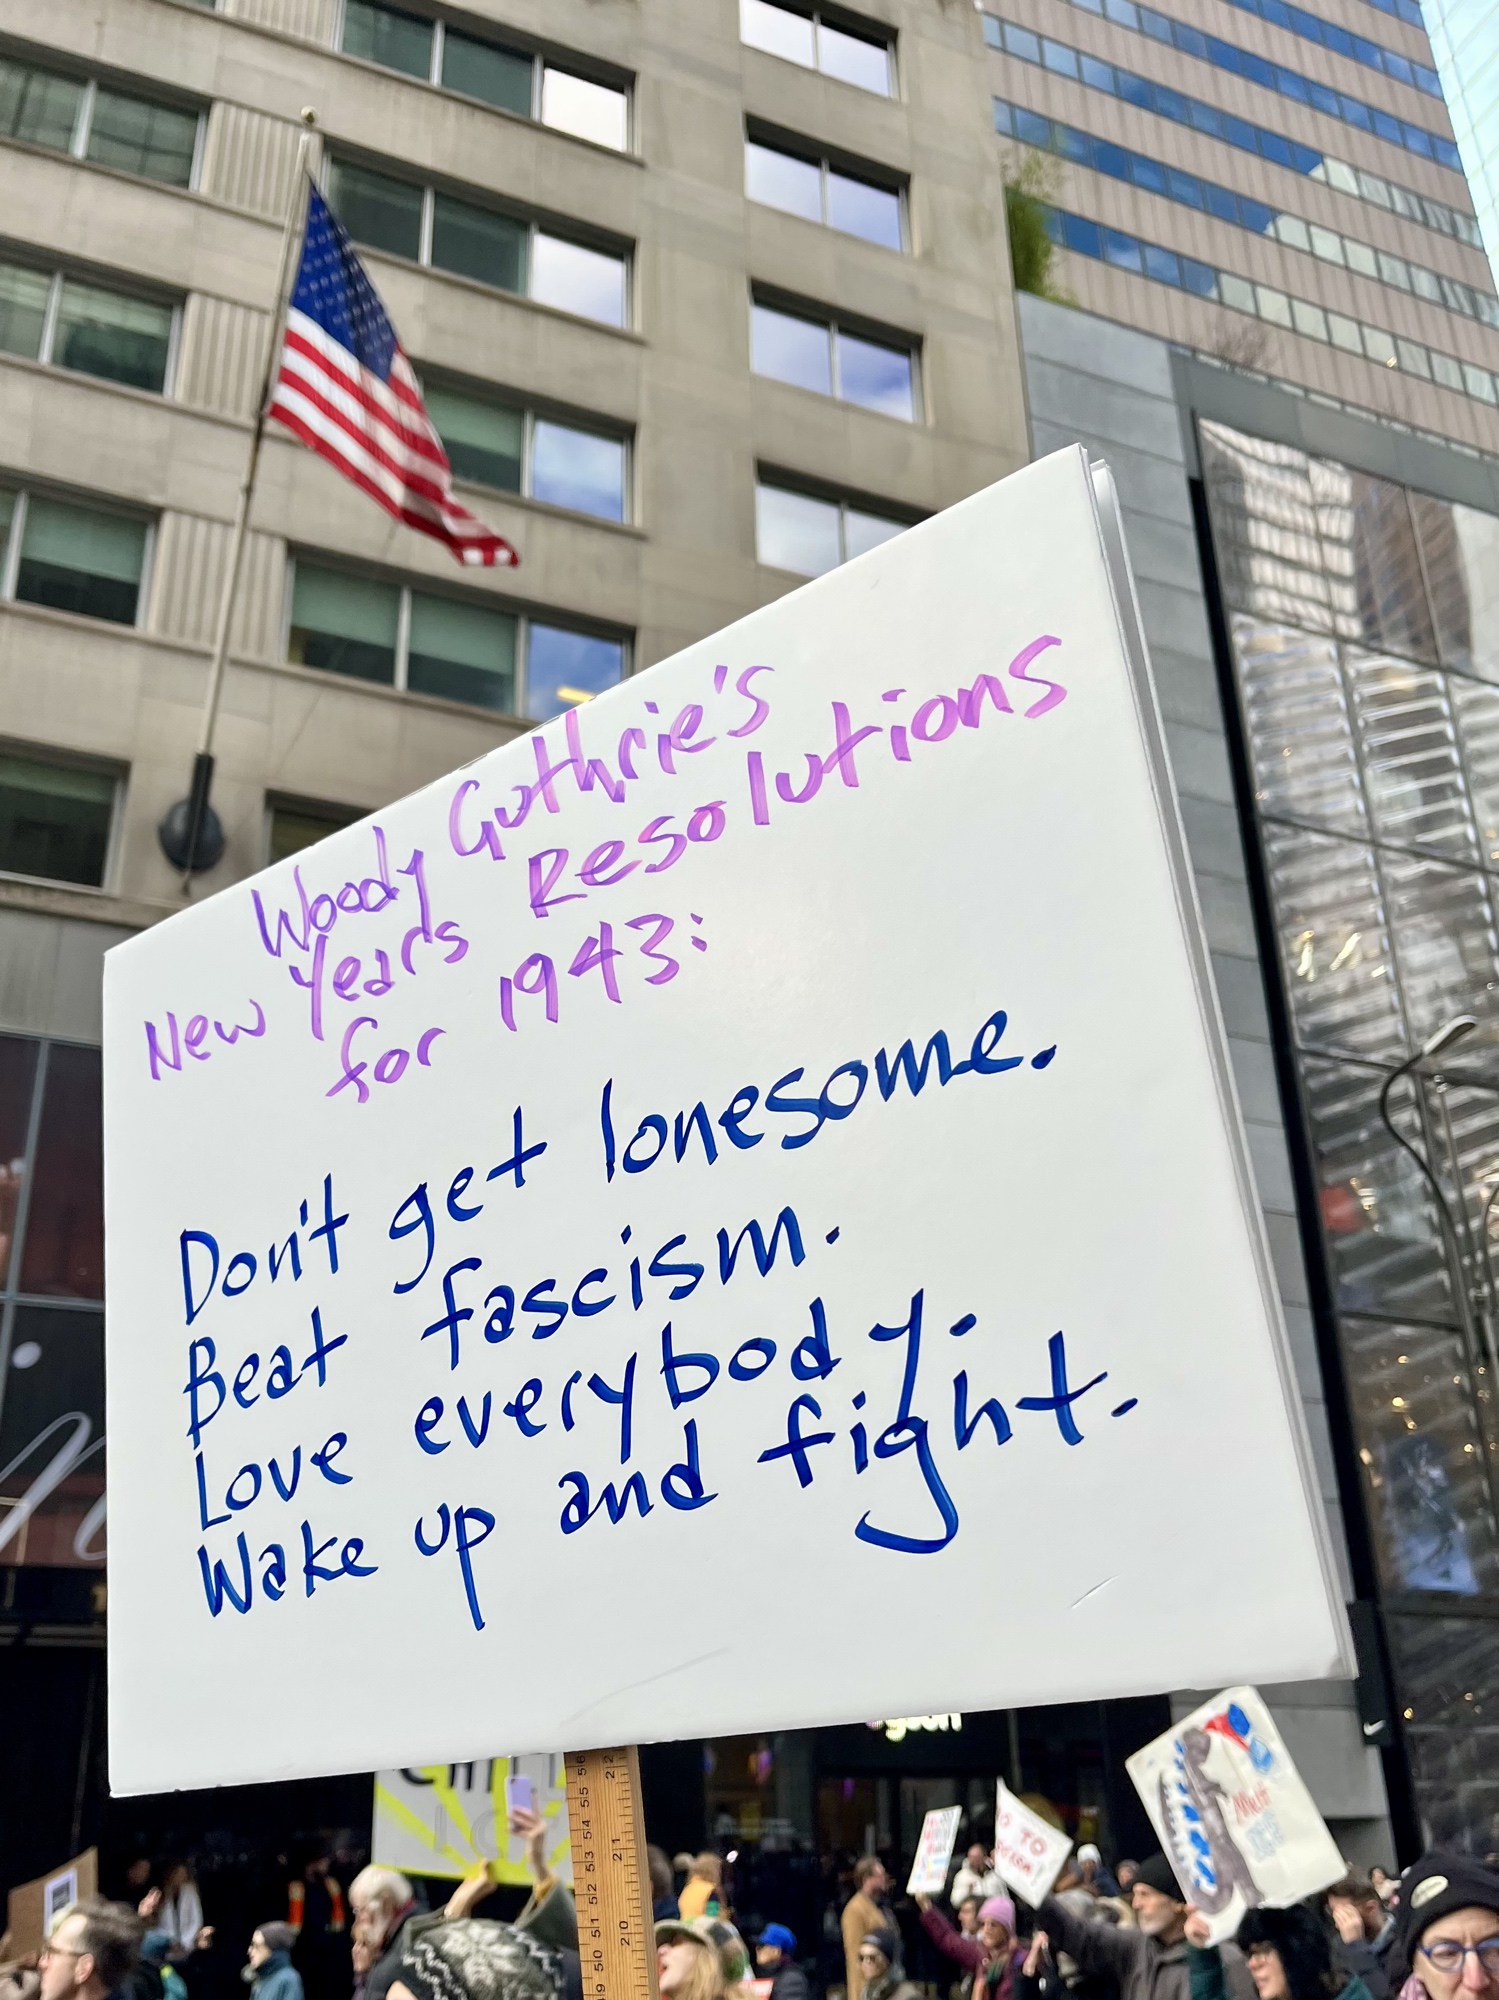 Woody Guthrie's
New Years Resolutions
for 1943:
Don't get lonesome.
Beat fascism.
Love everybody.
Wake up and fight.
56
55
54
53
52
51
50
22
21
20
TO